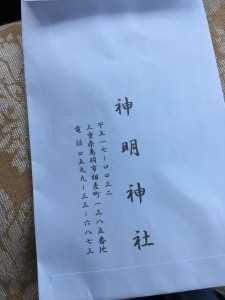 神明神社
〒五一七-〇〇三二
三重県鳥羽市相差町一三八五番地
電話 〇五九九-三三-六八七三